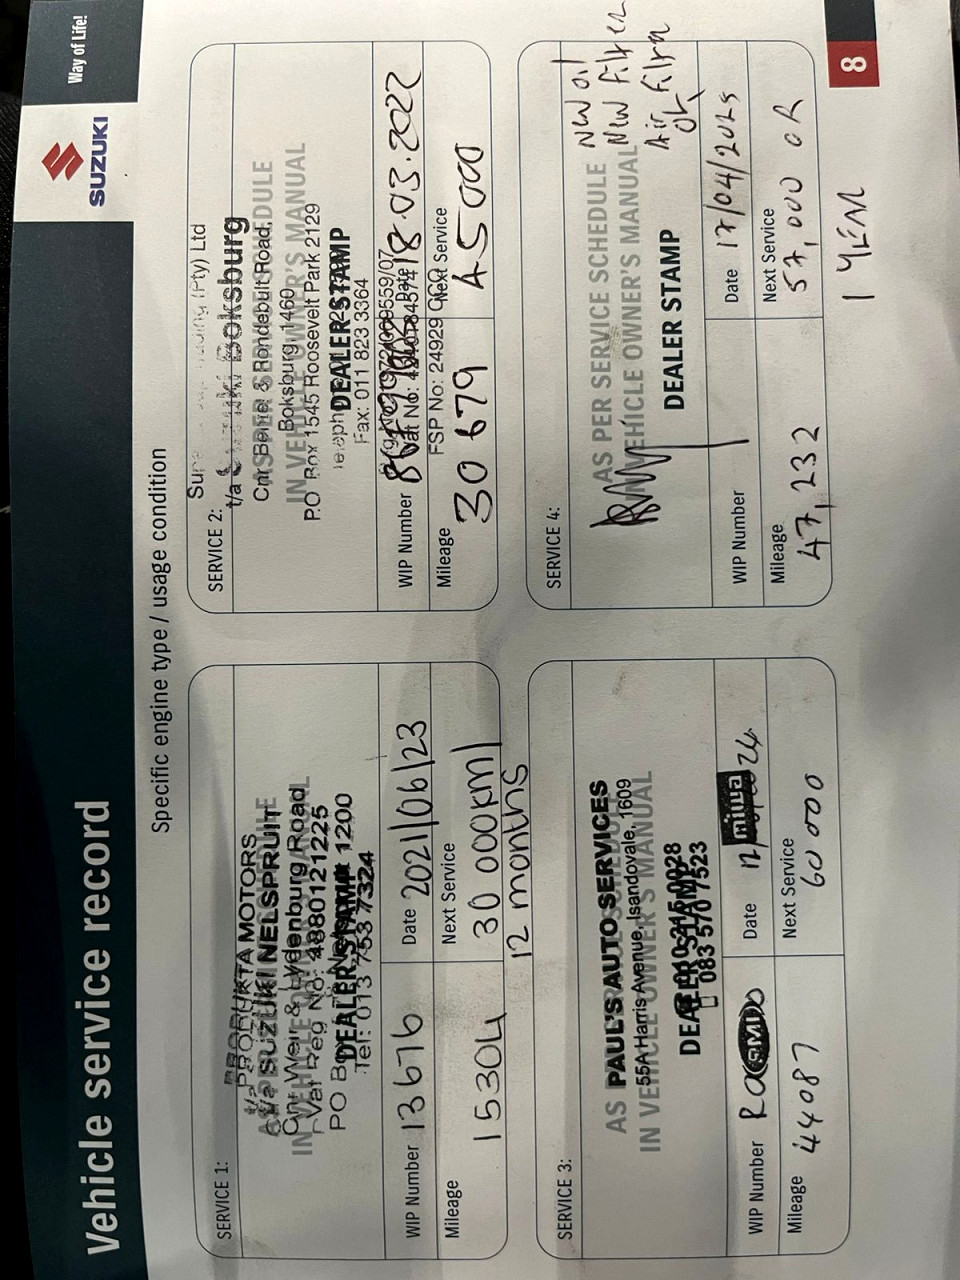 Vehicle service record
SUZUKI
Way of Life!
Specific engine type / usage condition
SERVICE 1:
PRODUKTA MOTORS
t/a SUZUKI NELSPRUIT
Cnr Weir & Lydenburg Road
Vat Reg No: 4880121225
PO Box Nelspruit 1200
Tel: 013 753 7324
AS PER SERVICE SCHEDULE
IN VEHICLE OWNER'S MANUAL
DEALER STAMP
WIP Number 13676
Date 2021/06/23
Mileage 15304
Next Service 30 000km/
12 months
SERVICE 2:
(Pty) Ltd
t/a Suzuki Boksburg
Cnr & Rondebult Road,
Boksburg, 1460
P.O Box 1545 Roosevelt Park 2129
Fax: 011 823 3364
Vat No:
FSP No: 24929
AS PER SERVICE SCHEDULE
IN VEHICLE OWNER'S MANUAL
DEALER STAMP
WIP Number
Date 18.03.2022
Mileage 30 679
Next Service 45 000
SERVICE 3:
PAUL'S AUTO SERVICES
55A Harris Avenue, Isandovale, 1609
083 570 7523
AS PER SERVICE SCHEDULE
IN VEHICLE OWNER'S MANUAL
DEALER STAMP
WIP Number RMI
Date 12/ 24
miwa
Mileage 44087
Next Service 60 000
SERVICE 4:
New oil
New filter
Air filter
AS PER SERVICE SCHEDULE
IN VEHICLE OWNER'S MANUAL
DEALER STAMP
WIP Number
Date 17/04/2025
Mileage 47,232
Next Service 57,000 OR
1 YEAR
8